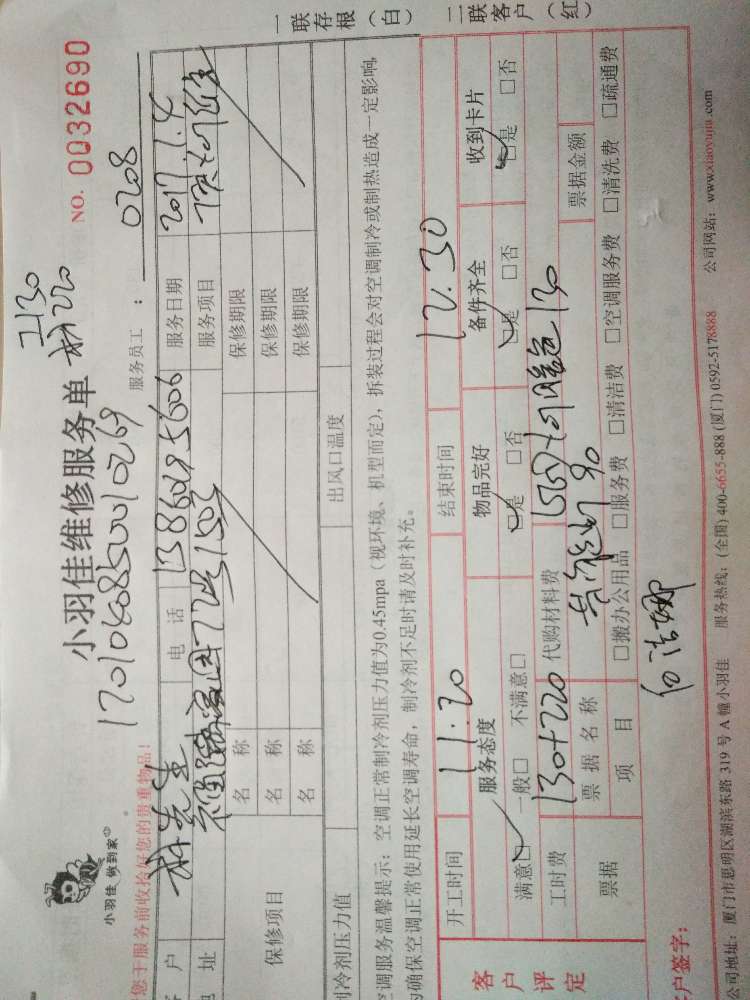 小羽佳 做到家
小羽佳维修服务单
NO. 0032690
1701040850010269
工130
材220
您于服务前收拾好您的贵重物品！
服务员工： 0208
户
电话
服务日期 2017.1.4
址
服务项目
保修项目
名称
保修期限
名称
保修期限
名称
保修期限
制冷剂压力值
出风口温度
空调服务温馨提示：空调正常制冷剂压力值为0.45mpa（视环境、机型而定），拆装过程会对空调制冷或制热造成一定影响，
为确保空调正常使用延长空调寿命，制冷剂不足时请及时补充。
一联存根（白）
二联客户（红）
客户评定
开工时间 11:20 结束时间 12.30
服务态度 物品完好 备件齐全 收到卡片
满意□ 一般□ 不满意□ □是 □否 □是 □否 □是 □否
工时费 130+220 代购材料费
票据
票据名称
票据金额
项目
□搬办公用品 □服务费 □清洁费 □空调服务费 □清洗费 □疏通费
户签字：
公司地址：厦门市思明区湖滨东路 319 号 A 幢小羽佳 服务热线：(全国) 400-6655-888 (厦门) 0592-5178888 公司网站：www.xiaoyujia.com